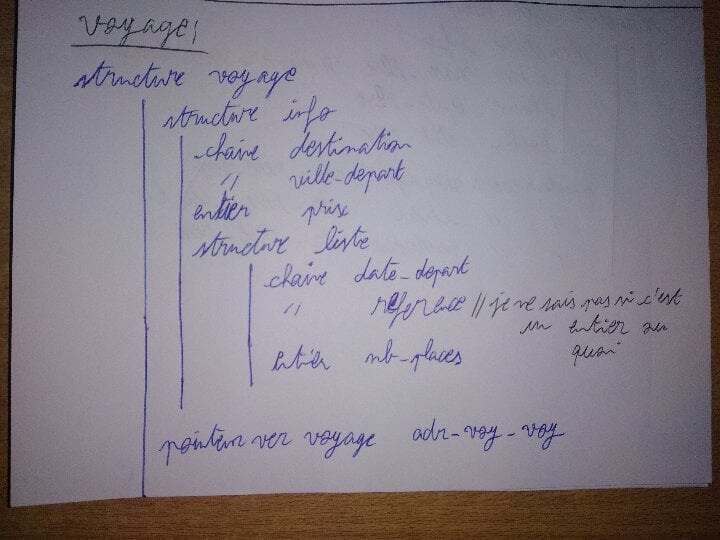 voyage;
structure voyage
structure info
chaine destination
" ville-depart
entier prix
structure liste
chaine date-depart
" reference // je ne sais pas si c'est
un entier ou
quoi
entier nb-places
pointeur ver voyage adr-voy-voy